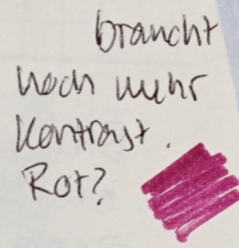 braucht
noch mehr
Kontrast.
Rot?